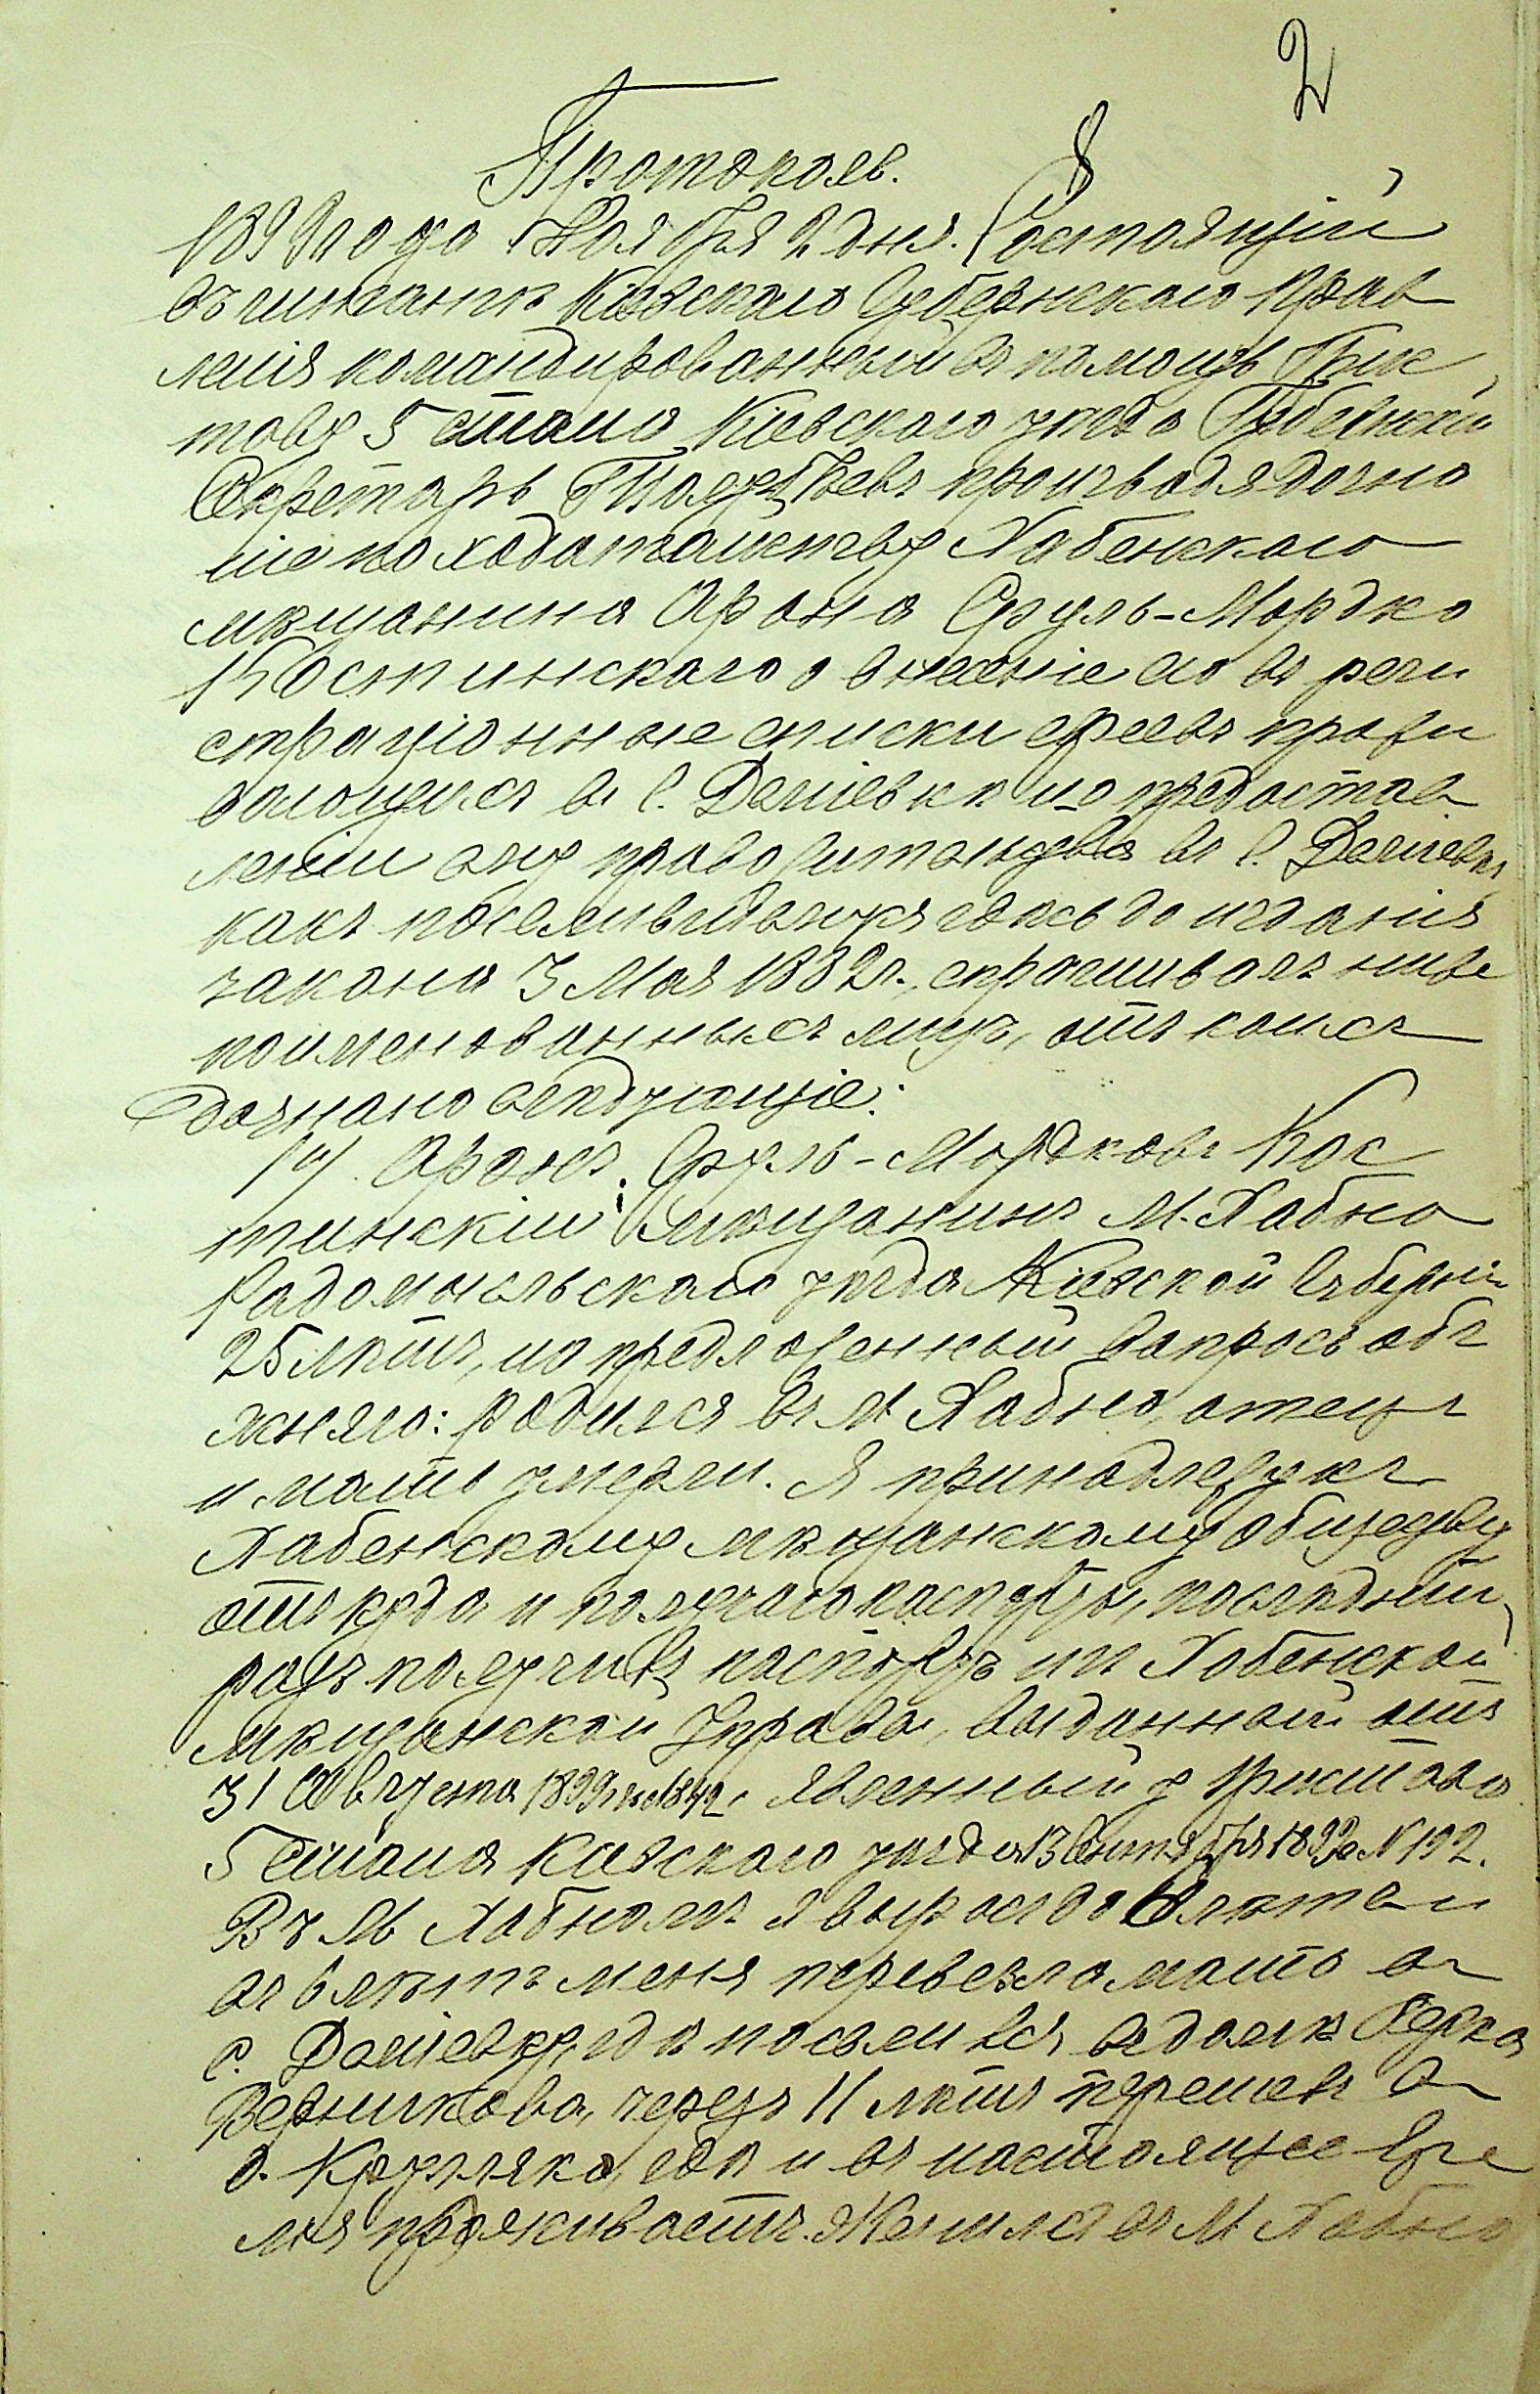 2
Протоколъ.
1899 года Ноября 2 дня. Состоящій
въ штатѣ Кіевскаго Губернскаго Прав
ленія командированный въ помощь Прис
таву 5 стана Кіевскаго уѣзда Губернскій
Секретарь производя дозна
ніе по ходатайству Хабенскаго
мѣщанина Арона Сруль-Мордко
Костинскаго о внесеніе его въ реги
страціонные списки евреевъ прожи
вающихъ въ с. Деміевкѣ и о предостав
леніи ему право жительства въ с. Деміевкѣ,
какъ поселившемуся здѣсь до изданія
закона 3 Мая 1882 г., спрашивалъ ниже
поименованныхъ лицъ, отъ коихъ
дознано слѣдующіе:
1/ Аронъ Сруль-Мордковъ Кос
тинскій мѣщанинъ М. Хабно
Радомысльскаго уѣзда Кіевской Губерніи
25 лѣтъ, на предложенный вопросъ объ
яснялъ: родился въ М. Хабно, отецъ
и мать умерли. Я принадлежу къ
Хабенскому мѣщанскому обществу
откуда и получаю паспорты, послѣдній
разъ получилъ паспортъ изъ Хабенской
мѣщанской Управы, выданной отъ
31 Августа 1899 г. явленный у Пристава
5 стана Кіевскаго уѣзда 13 Сентября 1899 г. N 192.
Въ М. Хабномъ я выросъ до 6 лѣтъ и
въ 6 лѣтъ меня перевезла мать въ
с. Деміевку, гдѣ поселился въ домѣ
черезъ 11 лѣтъ перешелъ въ
д. Кругляка, гдѣ и въ настоящее вре
мя проживаетъ. Женился въ М. Хабно